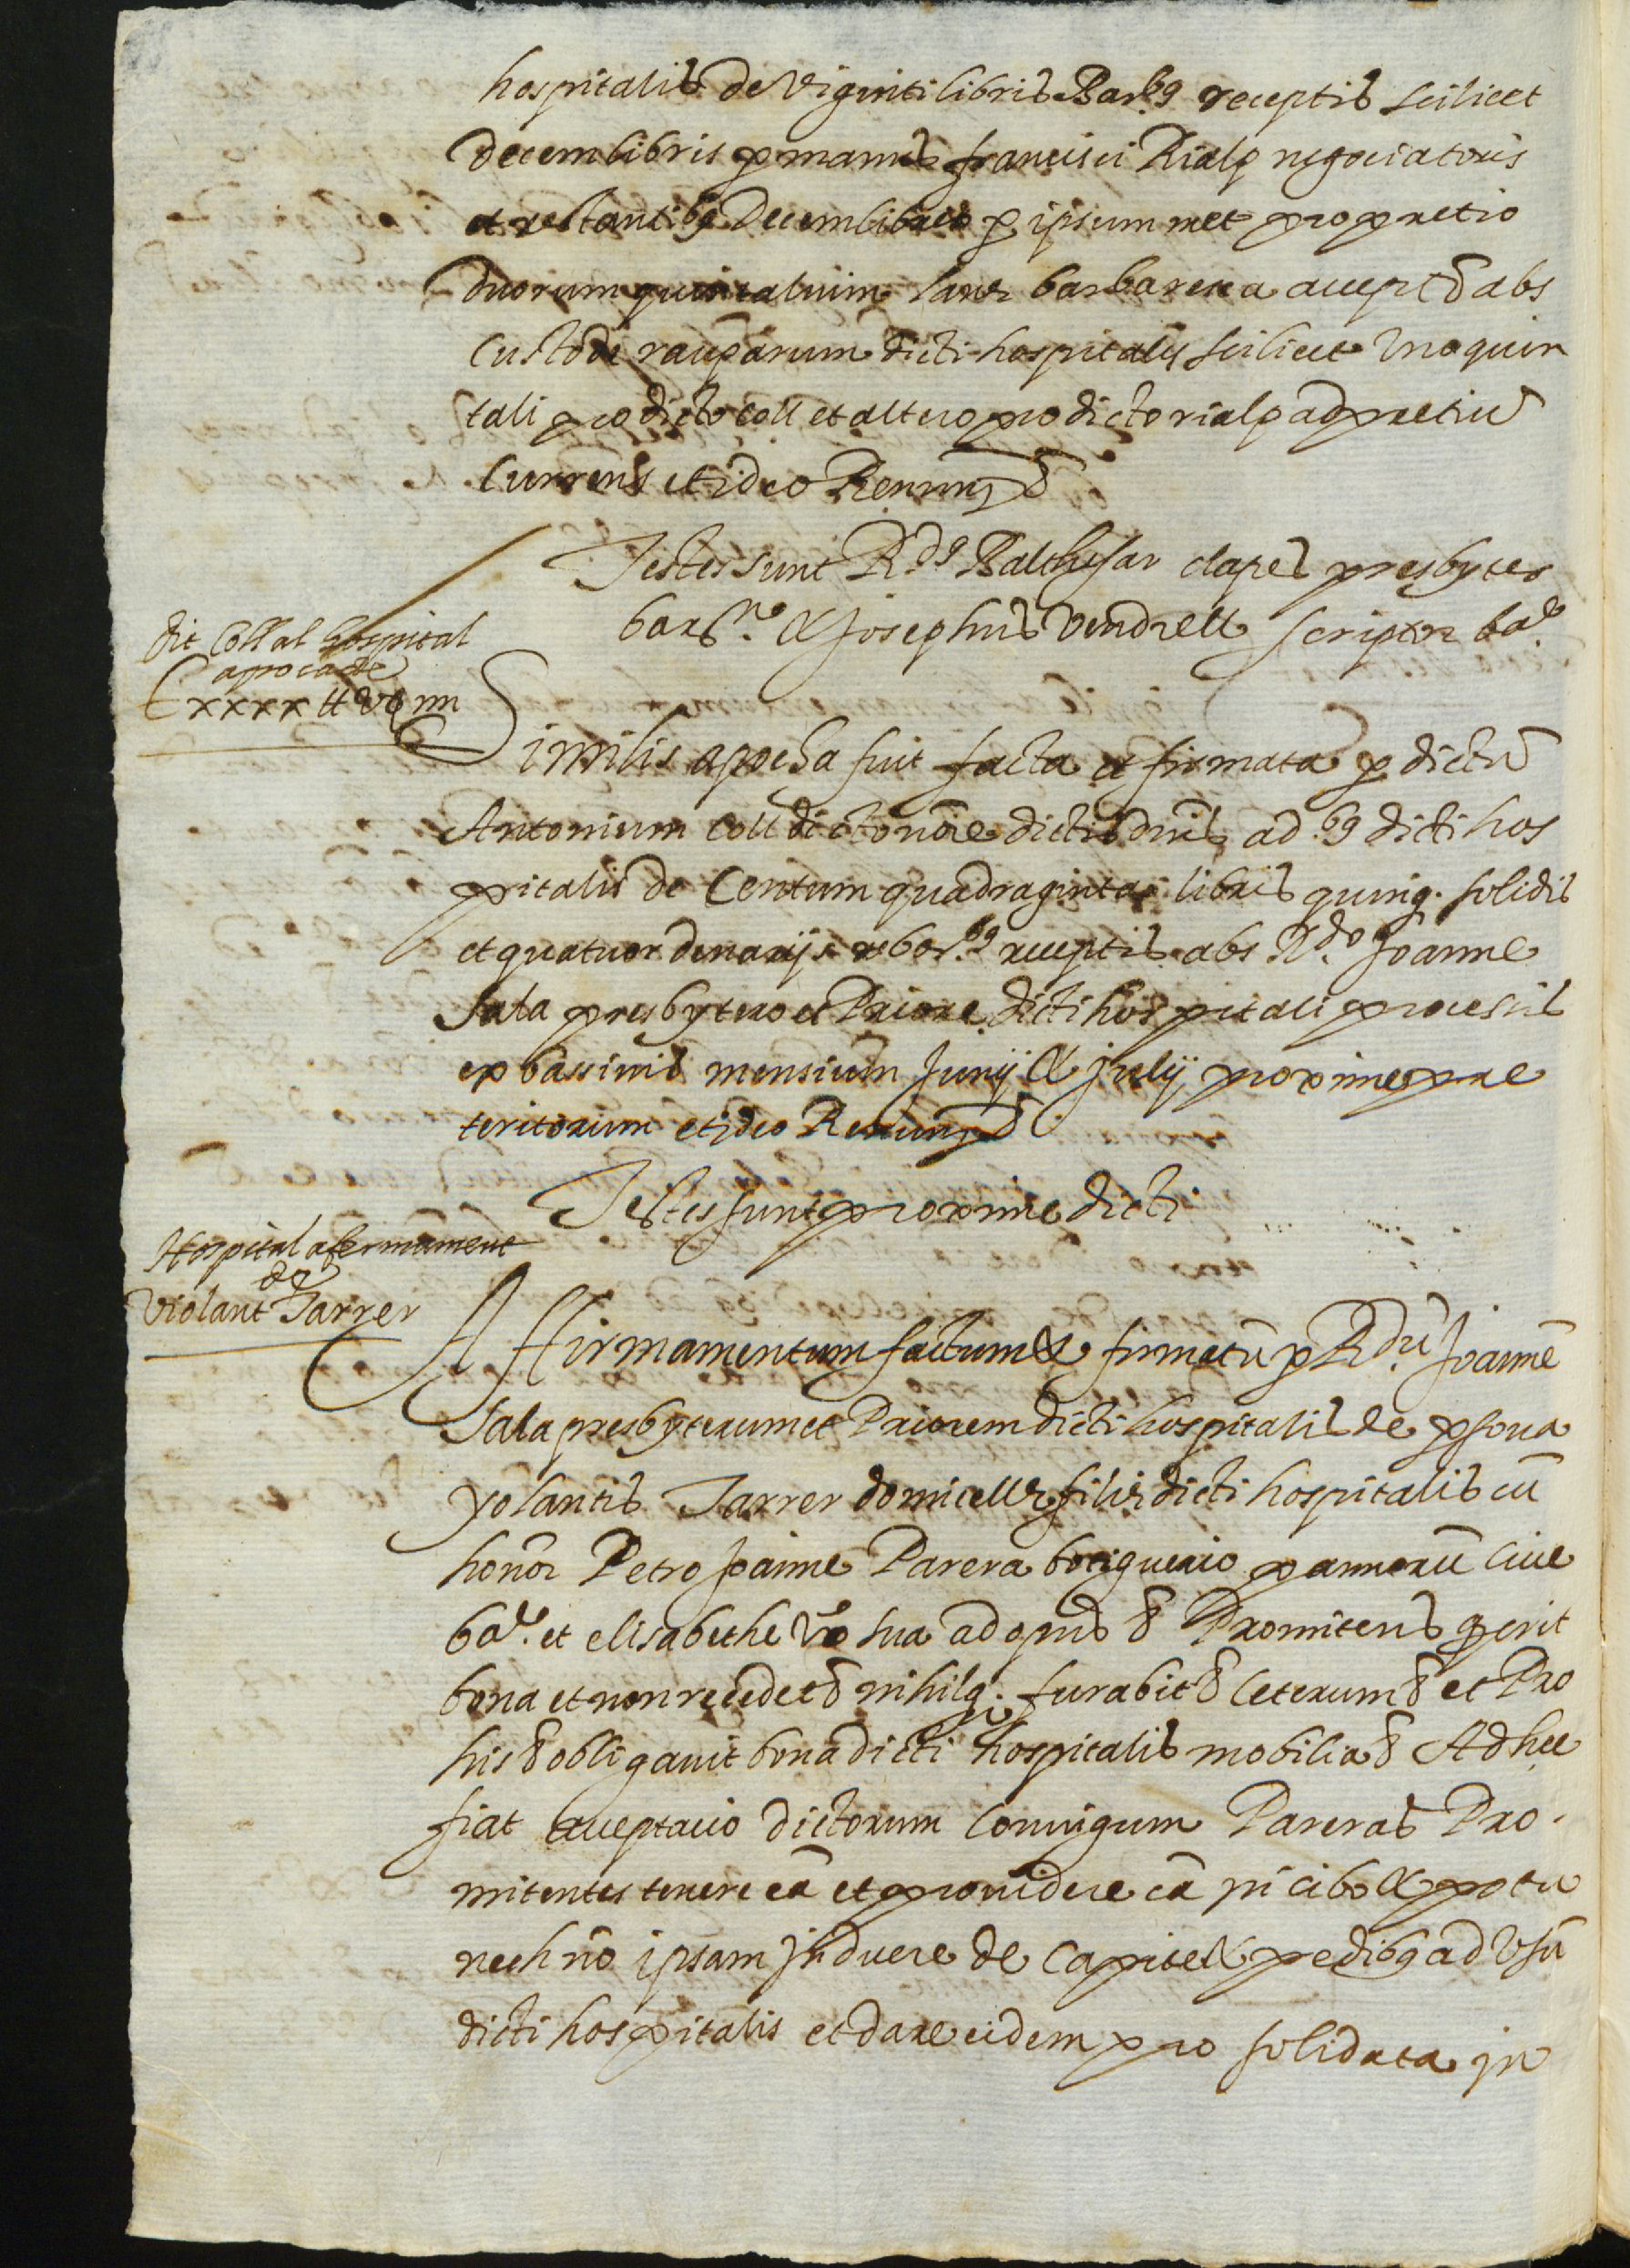 hospitalis de Viginti libris Bar.bq receptis scilicet
decem libris p manus francisci Rialp negociatoris
et restantibq decem libris p ipsummet pro pretio
duorum quintalium lane barbaresca accept abs
Custode rauparum dicti hospitalis scilicet Vno quin
tali pro dicto coll et altero pro dicto rialp ad pretiũ
Currens et ideo Renun
Testes sunt R.dq Balthesar clapes presbyter
bar.ne & Josephus Vendrell scriptor ba.e
dit Coll al hospital
apoca de
Cxxxx ll v ș iiii
Similis apocha fuit facta et firmata p dictũ
Antonium Coll dicto noīe dictis dnis ad.bq dicti hos
pitalis de Centum quadraginta libris quinq. solidis
et quatuor denarijs bar.bq receptis abs R.do Joanne
Sala presbytero et Priore dicti hospitali processis
ex bassinis mensium Junij & Julij proxime prae
teritorum et ideo Renun
Testes sunt proxime dicti
Hospital afermament
de
Violant Tarrer
Affirmamentum factum & firmatũ p R.dũ Joannē
Sala presbyterum et Priorem dicti hospitalis de psona
yolantis Tarrer domicelle filie dicti hospitalis cũ
honor Petro Joanne Parera botiguerio pannorũ Ciue
ba.e et elisabethe vx sua ad opus & Promitens q erit
bona et non recedet & nihilq. furabit & Ceterum & et Pro
his & obligauit bona dicti hospitalis mobilia & Ad hec
fiat acceptacio dictorum Coniugum Pareras Pro
mitentes tenere eā et prouidere eā in cibo & potu
nech nō ipsam Jnduere de Capite & pedibq ad Vsũ
dicti hospitalis et dare eidem pro solidata in